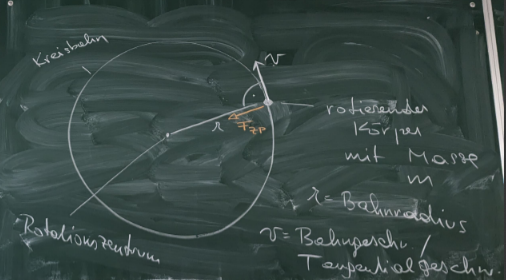 Kreisbahn
v
r
F ZP
rotierender
Körper
mit Masse
m
r = Bahnradius
Rotationszentrum
v = Bahngeschw. /
Tangentialgeschw.